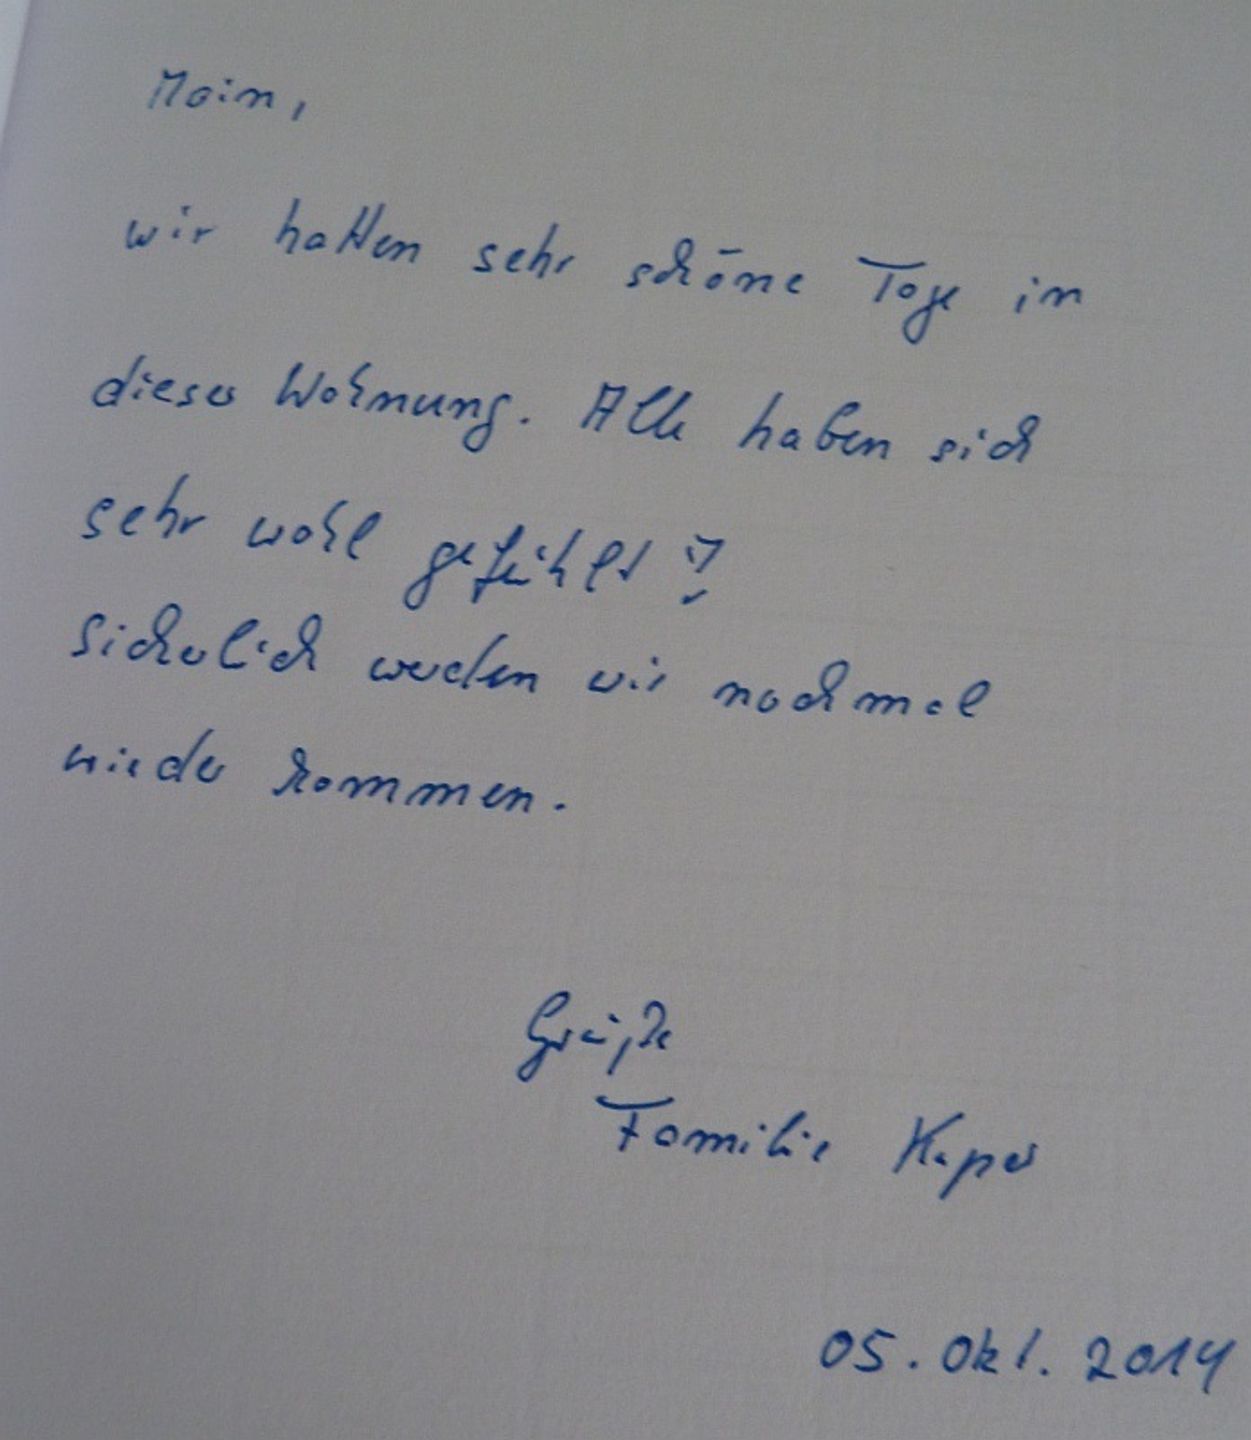 Moin,
wir hatten sehr schöne Tage in
dieser Wohnung. Alle haben sich
sehr wohl gefühlt!
Sicherlich werden wir nochmal
wieder kommen.
Grüße
Familie Kaper
05. Okt. 2014